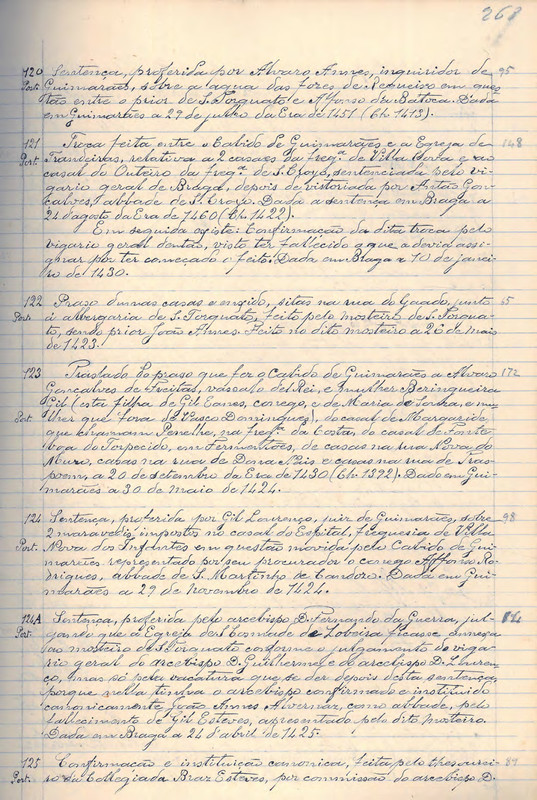 268
120 Sentença, proferida por Alvaro Annes, inquiridor de 95
Port. Guimarães, sobre a agua das fozes de em ques
tão entre o prior de S. Torquato e Affonso da Batoca. Dada
em Guimarães a 29 de julho da Era de 1451 (Ch. 1413).
121 Troca feita entre o Cabido de Guimarães e a Egreja de 148
Port. Trandeiras, relativa a 2 casaes da freg.ª de Villa Bôa e ao
casal do Outeiro da freg.ª de S. Eloyo, sentenciada pelo vi-
gario geral de Braga, depois de vistoriada por Antão Gon-
çalves, abbade de S. Dada a sentença em Braga a
24 d'agosto da Era de 1460 (Ch. 1422).
Em seguida existe: Confirmação da dita troca pelo
vigario geral d'antão, visto ter fallecido o que a devia assi-
gnar por ter começado o feito. Dada em Braga a 10 de janei-
ro de 1430.
122 Praso d'umas casas e enxido, sitas na rua do Gaado, junto 65
Port. á albergaria de S. Torquato, feito pelo mosteiro de S. Torqua-
to, sendo prior João Annes. Feito no dito mosteiro a 26 de maio
de 1423.
123 Traslado do praso que fez o Cabido de Guimarães a Alvaro 172
Gonçalves de Freitas, vassalo del Rei, e mulher Beringueira
Gil (esta filha de Gil Ennes, conego, e de Maria de e mu-
Port. lher que fora de Vasco Domingues), do casal de Margaride,
que chamam Penelha, na freg.ª da Costa, do casal de Fonte
bôa do Torpecido, em Fermentões, de casas na rua Nova do
Muro, casas na rua de Dona Nais e casas na rua de Tras
poem, a 20 de setembro da Era de 1430 (Ch. 1392). Dado em Gui-
marães a 30 de Maio de 1424.
124 Sentença, proferida por Gil Lourenço, juiz de Guimarães, sobre 98
2 maravedis impostos no casal do Espital, freguesia de Villa
Port. Nova dos Infantes em questão movida pelo Cabido de Gui-
marães representado por seu procurador o conego Affonso Ro-
drigues, abbade de S. Martinho de Cardozo. Dada em Gui-
marães a 29 de Novembro de 1424.
124A Sentença, proferida pelo arcebispo D. Fernando da Guerra, jul-
Port. gando que a Egreja de S. Cosmade de Lobeira ficasse annexa
ao mosteiro de S. Torquato conforme o julgamento do viga-
rio geral do arcebispo D. Guilherme e do arcebispo D. Louren-
ço, mas só pela vacatura que se der depois desta sentença,
porque nella tinha o arcebispo confirmado e instituido
canonicamente João Annes Alvernaz, como abbade, pelo
fallecimento de Gil Esteves, apresentado pelo dito Mosteiro.
Dada em Braga a 24 d'abril de 1425.
125 Confirmação e instituição canonica, feita pelo thesourei- 87
Port. ro da Collegiada Braz Esteves, por commissão do arcebispo D.